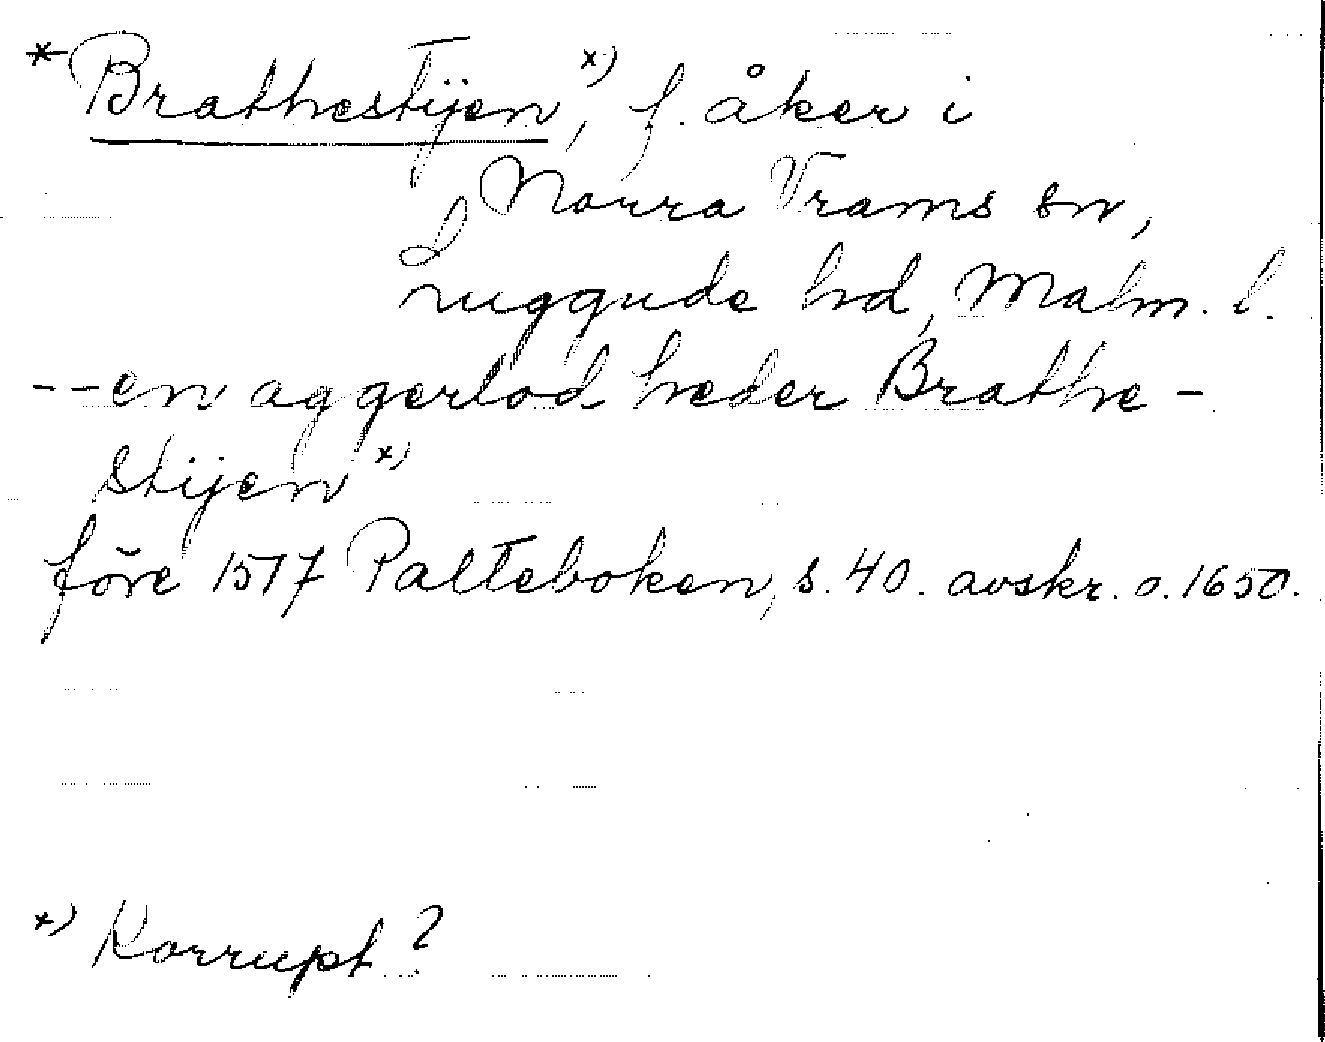 *Brathestijen,ˣ⁾ f. åker i
Norra Vrams sn,
Luggude hd, Malm. l.
--en aggerlod heder Brathe-
stijenˣ⁾
före 1577 Palteboken, s. 40. avskr. o. 1650.
ˣ⁾ Korrupt?